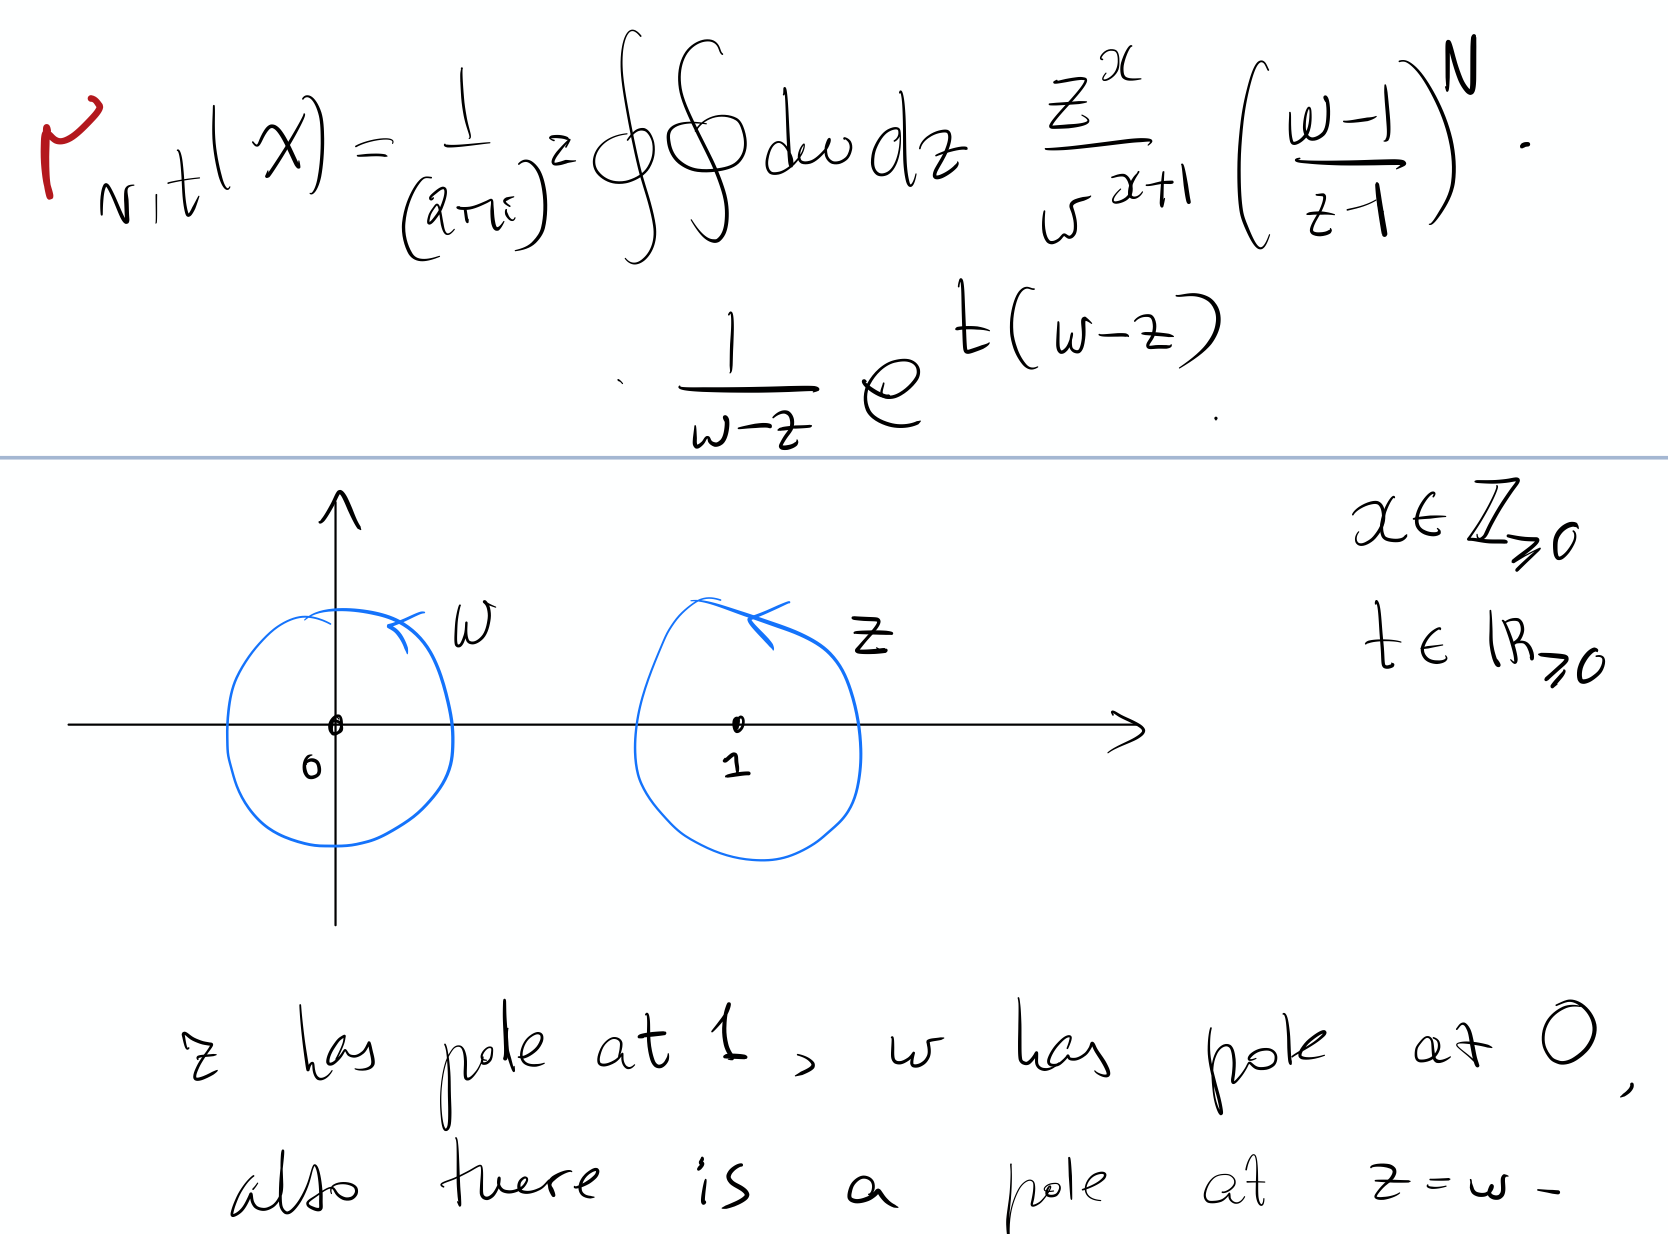 r_{N,t}(x) = \frac{1}{(2\pi i)^2} \oint\oint dw dz \frac{z^x}{w^{x+1}} \left(\frac{w-1}{z-1}\right)^N ·
· \frac{1}{w-z} e^{t(w-z)}.
x ∈ ℤ_{⩾0}
w z
t ∈ ℝ_{⩾0}
0 1
z has pole at 1, w has pole at 0,
also there is a pole at z = w -